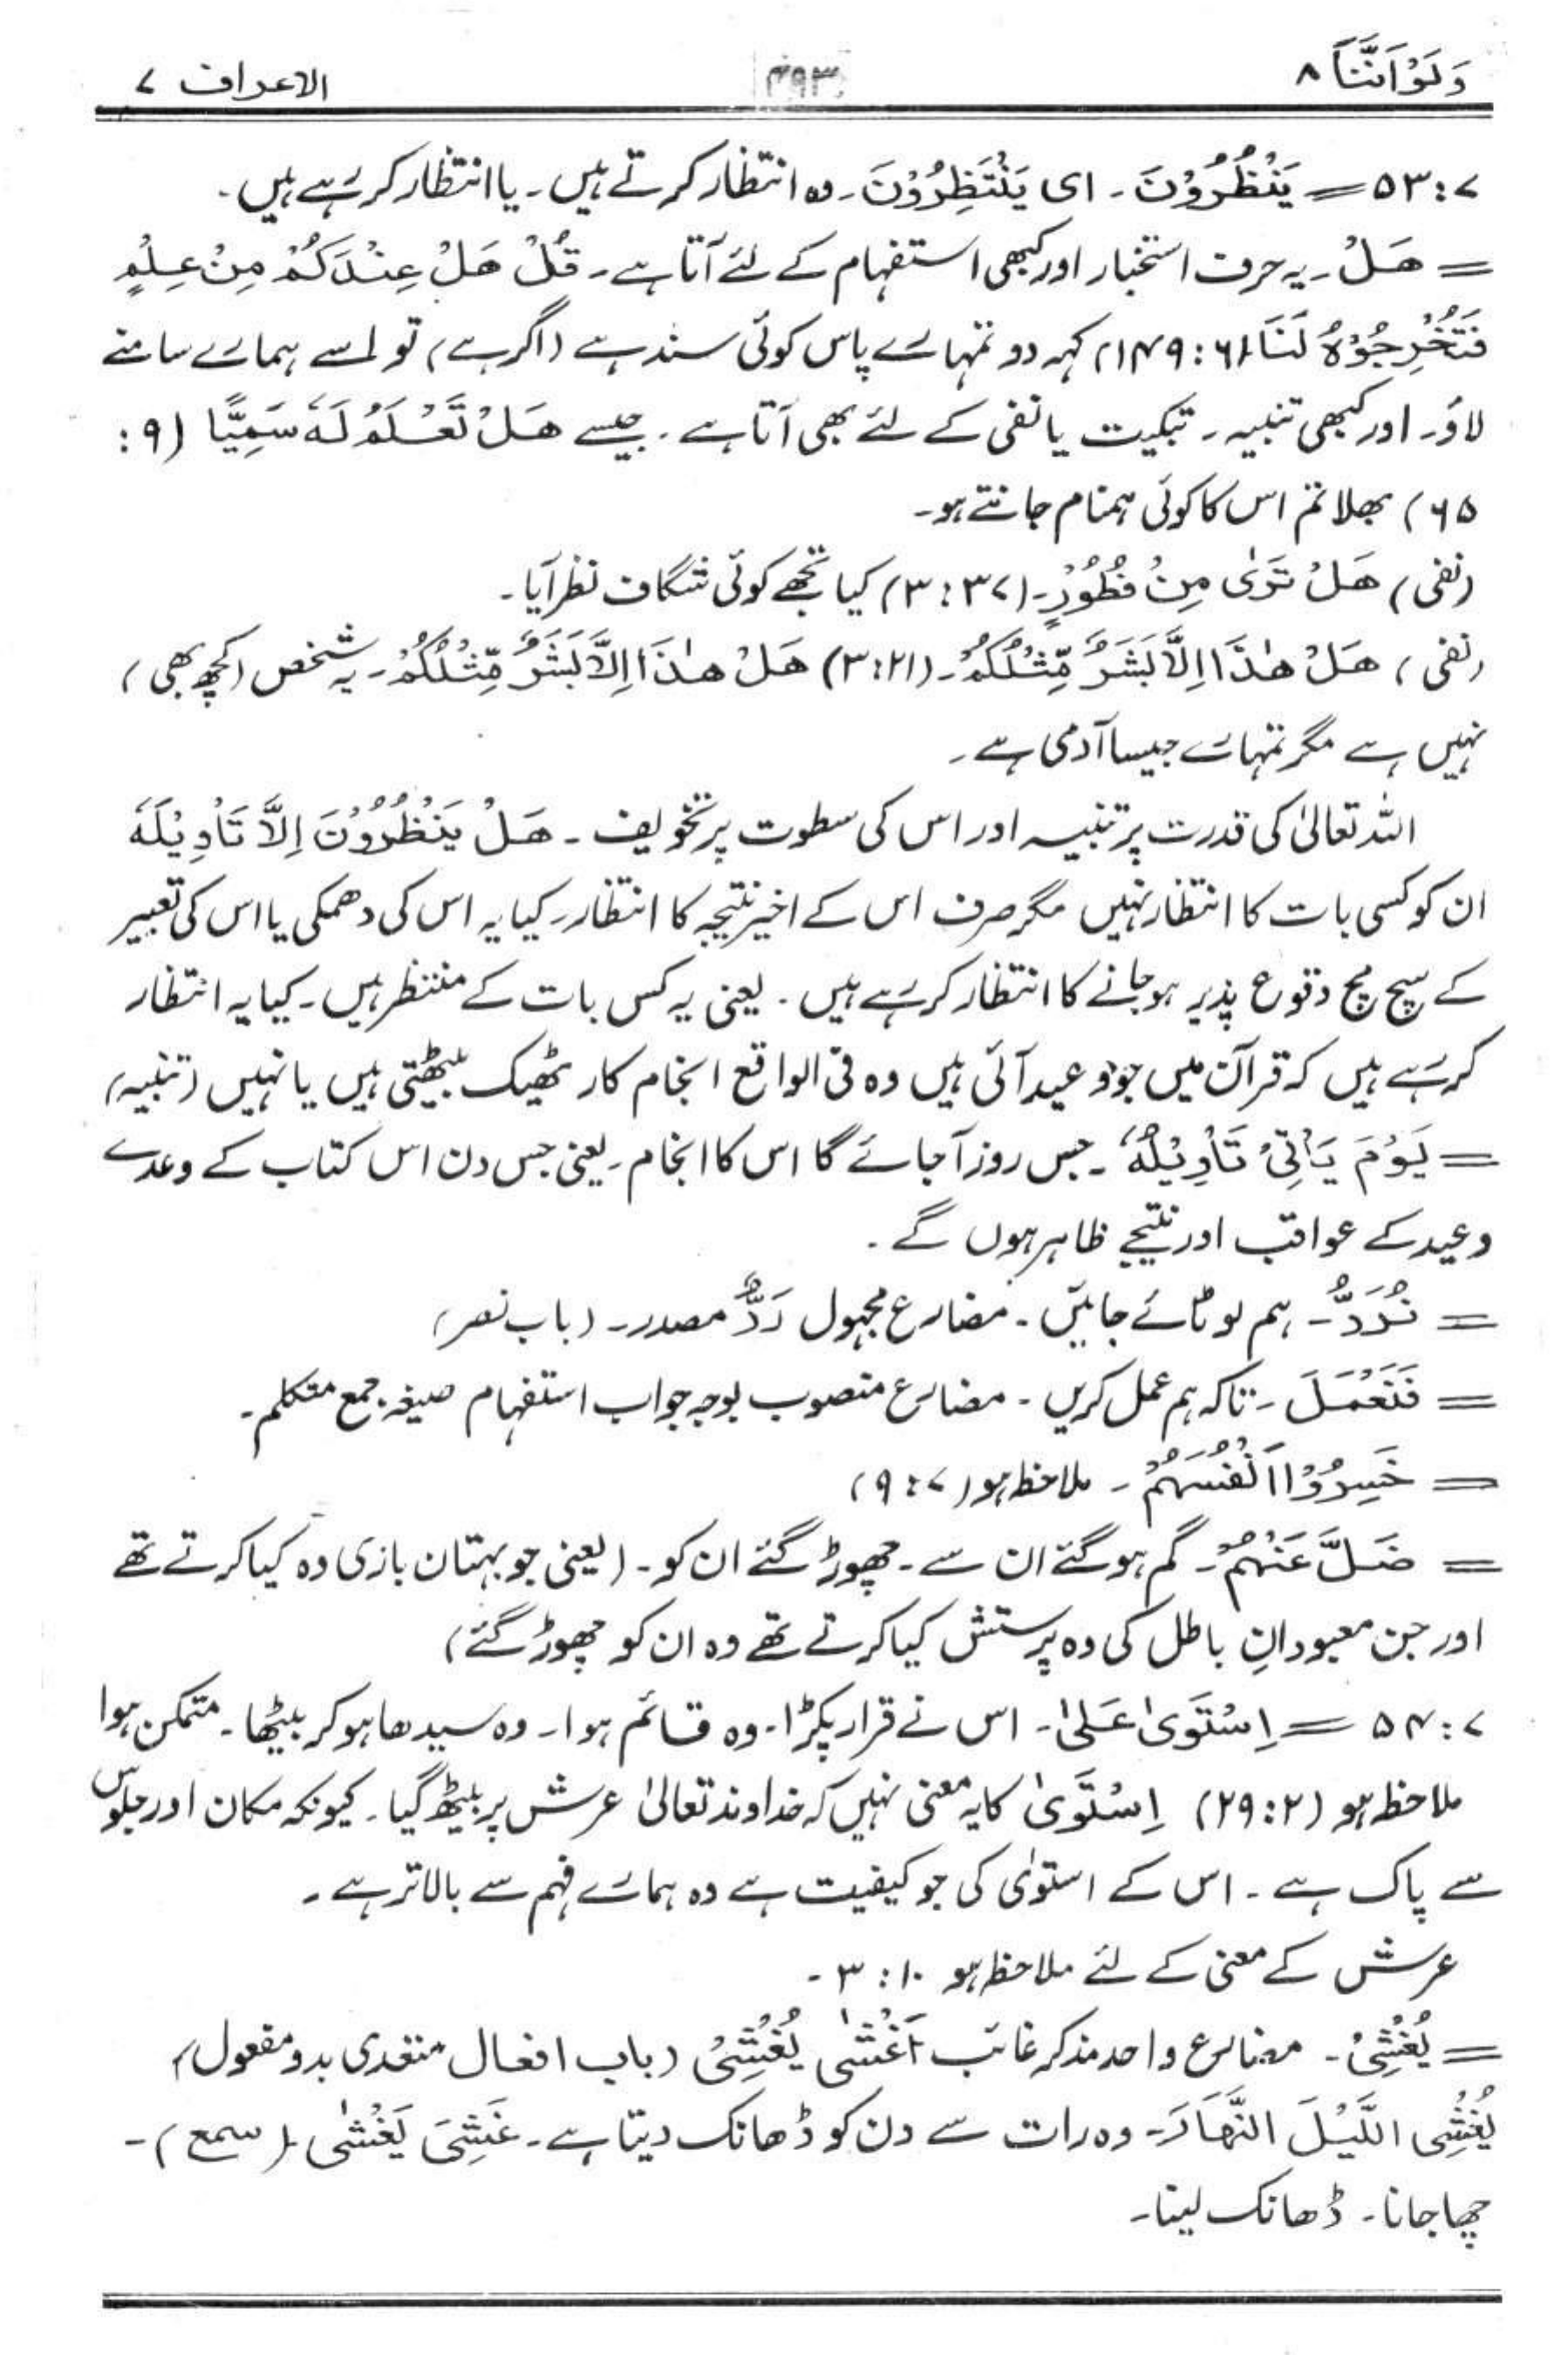 وَلَوْاَنَّنَآ ۸
۴۹۳
الاعراف ۷
۷: ۵۳ = یَنْظُرُوْنَ ۔ ای یَنْتَظِرُوْنَ ۔ وہ انتظار کرتے ہیں ۔ یا انتظار کر رہے ہیں ۔
= ھَلْ ۔ یہ حرف استخبار اور کبھی استفہام کے لئے آتا ہے ۔ قُلْ ھَلْ عِنْدَکُمْ مِنْ عِلْمٍ
فَتُخْرِجُوْہُ لَنَا (۶: ۱۴۹) کہہ دو تمہارے پاس کوئی سند ہے (اگر ہے) تو اسے ہمارے سامنے
لاؤ۔ اور کبھی تنبیہ ۔ تبکیت یا نفی کے لئے بھی آتا ہے ۔ جیسے ھَلْ تَعْلَمُ لَہٗ سَمِیًّا (۹:
۶۵) بھلا تم اس کا کوئی ہمنام جانتے ہو۔
(نفی) ھَلْ تَرٰی مِنْ فُطُوْرٍ ۔ (۳۷: ۳) کیا تجھے کوئی شگاف نظر آیا ۔
(نفی) ھَلْ ھٰذَا اِلَّا بَشَرٌ مِّثْلُکُمْ ۔ (۲۱: ۳) ھَلْ ھٰذَا اِلَّا بَشَرٌ مِّثْلُکُمْ ۔ یہ شخص (کچھ بھی)
نہیں ہے مگر تمہارے جیسا آدمی ہے ۔
اللہ تعالیٰ کی قدرت پر تنبیہ اور اس کی سطوت پر تخویف ۔ ھَلْ یَنْظُرُوْنَ اِلَّا تَاْوِیْلَہٗ
ان کو کسی بات کا انتظار نہیں مگر صرف اس کے اخیر نتیجہ کا انتظار ۔ کیا یہ اس کی دھمکی یا اس کی تعبیر
کے سچ مچ وقوع پذیر ہو جانے کا انتظار کر رہے ہیں ۔ یعنی یہ کس بات کے منتظر ہیں ۔ کیا یہ انتظار
کر رہے ہیں کہ قرآن میں جو وعید آئی ہیں وہ فی الواقع انجام کار ٹھیک بیٹھتی ہیں یا نہیں (تنبیہ)
= یَوْمَ یَاْتِیْ تَاْوِیْلُہٗ ۔ جس روز آجائے گا اس کا انجام ۔ یعنی جس دن اس کتاب کے وعدے
وعید کے عواقب اور نتیجے ظاہر ہوں گے ۔
= نُرَدُّ ۔ ہم لوٹائے جائیں ۔ مضارع مجہول رَدٌّ مصدر ۔ (باب نصر)
= فَنَعْمَلَ ۔ تاکہ ہم عمل کریں ۔ مضارع منصوب بوجہ جواب استفہام صیغہ جمع متکلم ۔
= خَسِرُوْا اَنْفُسَہُمْ ۔ ملاحظہ ہو (۷: ۹)
= ضَلَّ عَنْہُمْ ۔ گم ہو گئے ان سے ۔ چھوڑ گئے ان کو ۔ (یعنی جو بہتان بازی وہ کیا کرتے تھے
اور جن معبودانِ باطل کی وہ پرستش کیا کرتے تھے وہ ان کو چھوڑ گئے)
۷: ۵۴ = اِسْتَوٰی عَلٰی ۔ اس نے قرار پکڑا ۔ وہ قائم ہوا ۔ وہ سیدھا ہو کر بیٹھا ۔ متمکن ہوا
ملاحظہ ہو (۲: ۲۹) اِسْتَوٰی کا یہ معنی نہیں کہ خداوند تعالیٰ عرش پر بیٹھ گیا ۔ کیونکہ مکان اور جلوس
سے پاک ہے ۔ اس کے استویٰ کی جو کیفیت ہے وہ ہمارے فہم سے بالاتر ہے ۔
عرش کے معنی کے لئے ملاحظہ ہو ۱۰: ۳ ۔
= یُغْشِیْ ۔ مضارع واحد مذکر غائب اَغْشٰی یُغْشِیْ (باب افعال متعدی بدو مفعول)
یُغْشِی الَّیْلَ النَّھَارَ ۔ وہ رات سے دن کو ڈھانک دیتا ہے ۔ غَشِیَ یَغْشٰی (سمع) ۔
چھا جانا ۔ ڈھانک لینا ۔